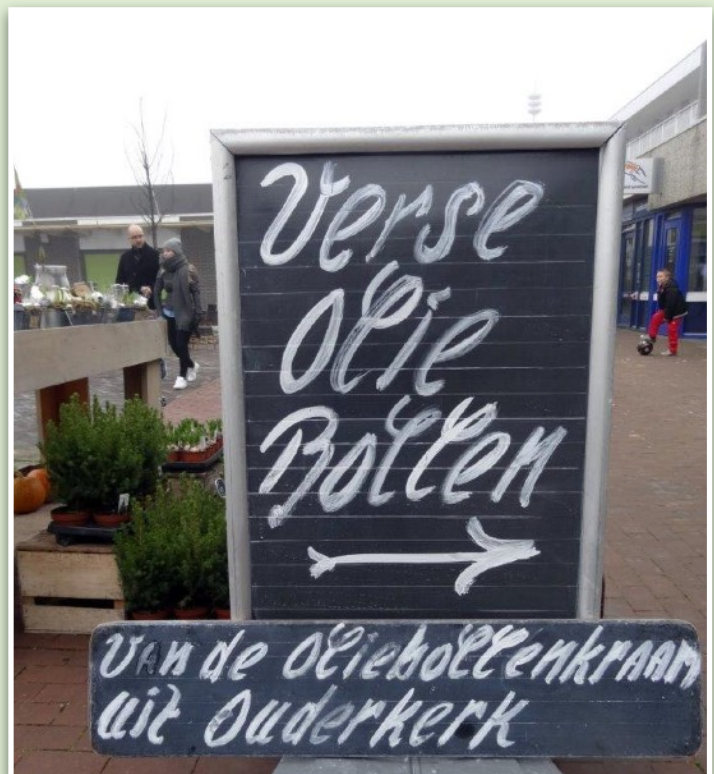 Verse
Olie
Bollen
Van de Oliebollenkraam
uit Ouderkerk